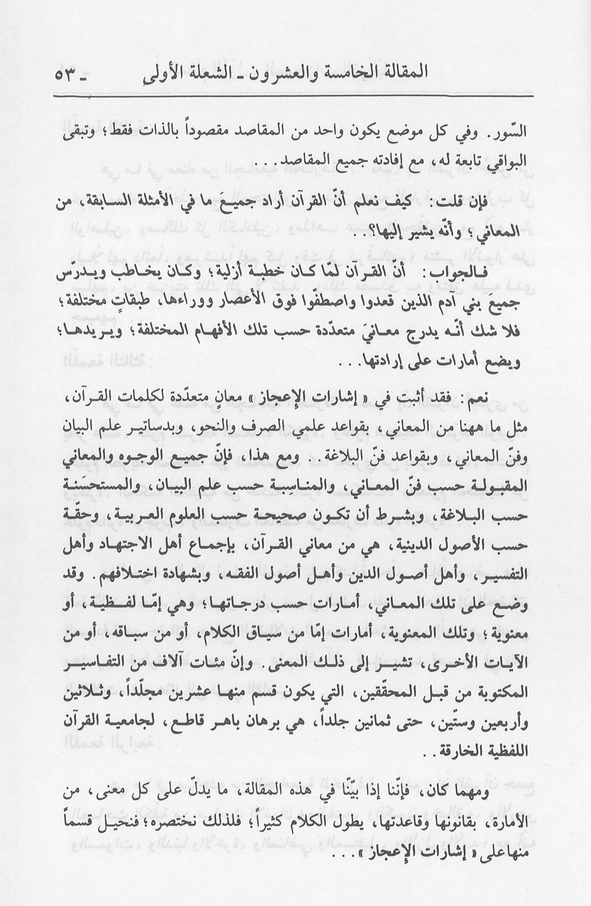 المقالة الخامسة والعشرون ـ الشعلة الأولى ـ ٥٣
السّور. وفي كل موضع يكون واحد من المقاصد مقصوداً بالذات فقط؛ وتبقى
البواقي تابعة له، مع إفادته جميع المقاصد...
فإن قلت: كيف نعلم أنّ القرآن أراد جميعَ ما في الأمثلة السابقة، من
المعاني؛ وأنّه يشير إليها؟..
فـالجواب: أنّ القـرآن لمّا كـان خطبـة أزليّة؛ وكـان يخـاطب ويـدرس
جميعَ بني آدم الذين قعدوا واصطفّوا فوق الأعصار ووراءها، طبقاتٍ مختلفة؛
فلا شك أنّـه يدرج معـانيَ متعدّدة حسب تلك الأفهـام المختلفة؛ ويـريدهـا؛
ويضع أمارات على إرادتها...
نعم: فقد أثبت في « إشارات الإعجاز » معانٍ متعدّدة لكلمات القرآن،
مثل ما ههنا من المعاني، بقواعد علمي الصرف والنحو، وبدساتير علم البيان
وفنّ المعاني، وبقواعد فنّ البلاغة.. ومع هذا، فإنّ جميع الوجوه والمعاني
المقبولـة حسب فنّ المعـاني، والمناسِبـة حسب علم البيـان، والمستحسَنـة
حسب البـلاغة، وبشـرط أن تكـون صحيحـة حسب العلوم العـربية، وحقّـة
حسب الأصول الدينية، هي من معاني القرآن، بإجماع أهل الاجتهاد وأهل
التفسير، وأهل أصول الدين وأهل أصول الفقه، وبشهادة اختلافهم. وقد
وضع على تلك المعاني، أمارات حسب درجاتها؛ وهي إمّا لفـظية، أو
معنوية؛ وتلك المعنوية، أمارات إمّا من سياق الكلام، أو من سباقه، أو من
الآيـات الأخـرى، تشيـر إلى ذلـك المعنى. وإنّ مئـات آلاف من التفـاسيـر
المكتوبة من قبل المحقّقين، التي يكون قسم منها عشرين مجلّداً، وثـلاثين
وأربعين وستّين، حتى ثمانين جلداً، هي برهان باهر قـاطع، لجـامعية القرآن
اللفظية الخارقة..
ومهما كان، فإنّنا إذا بيّنّا في هذه المقالة، ما يدلّ على كل معنى، من
الأمارة، بقانونها وقاعدتها، يطول الكلام كثيراً؛ فلذلك نختصره؛ فنحيـل قسماً
منها على « إشارات الإعجاز »...